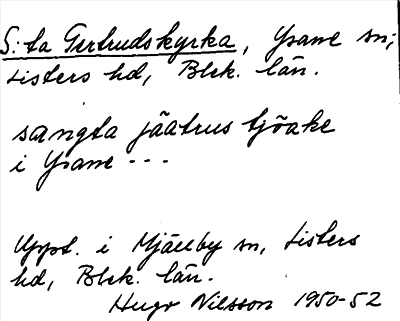 S:ta Gertrudskyrka, Ysane sn,
Listers hd, Blek. län.
sangta jäatrus tjöake
i Ysane ---
Uppt. i Mjällby sn, Listers
hd, Blek. län.
Hugo Nilsson 1950-52